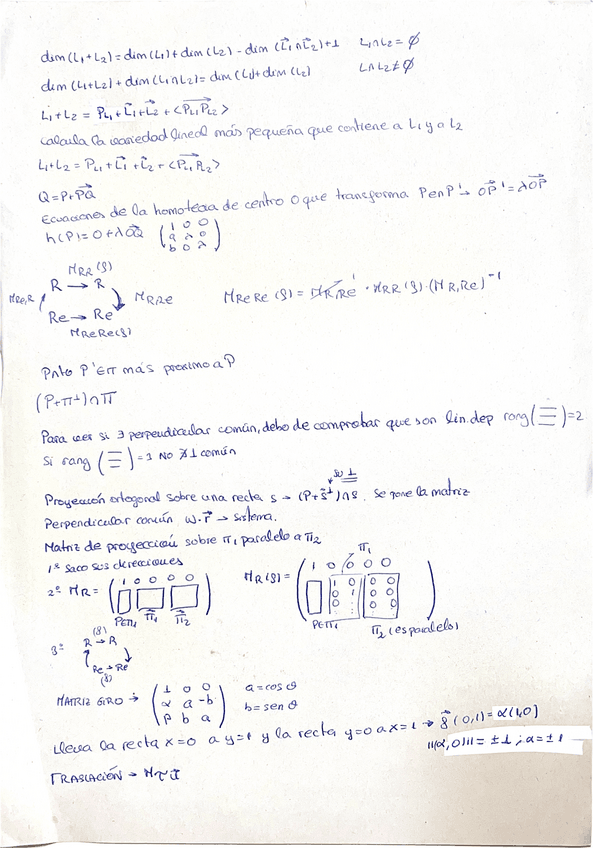 dim(L₁+L₂)=dim(L₁)+dim(L₂)-dim(L⃗₁∩L⃗₂)+1 L₁∩L₂=∅
dim(L₁+L₂)+dim(L₁∩L₂)=dim(L₁)+dim(L₂) L₁∩L₂≠∅
L₁+L₂ = P_L₁+L⃗₁+L⃗₂+<P_L₁P_L₂>
calcula la variedad lineal más pequeña que contiene a L₁ y a L₂
L₁+L₂ = P_L₁+L⃗₁+L⃗₂+<P_L₁P_L₂>
Q=P+PQ
Ecuaciones de la homotecia de centro O que transforma P en P' → OP'=λOP
h(P)=O+λOQ (1 0 0
a λ 0
b 0 λ)
M_RR(f)
R → R
M_Re,R M_R,Re M_ReRe(f) = M_R,Re · M_RR(f)·(M_R,Re)⁻¹
Re → Re
M_ReRe(f)
Pnto P'∈π más proximo a P
(P+π⊥)∩π
Para ver si ∃ perpendicular común, debo de comprobar que son lin.dep rang(☰)=2
Si rang(☰)=3 NO ∄ ⊥ común
su ⊥
Proyección ortogonal sobre una recta s → (P+s⊥)∩s. Se pone la matriz
Perpendicular común, w·r → sistema.
Matriz de proyección sobre π₁ paralelo a π₂
1º saco sus direcciones
π₁
2º M_R = (1 0 0 0 0) M_R(f) = (1 0 0 0 0
0 1 0 0
0 1 0 0
0 0 0)
P∈π₁ π⃗₁ π⃗₂ P∈π₁ π₂ (es paralelo)
3º (f)
R → R
Re → Re
(f)
MATRIZ GIRO → (1 0 0
α a -b
β b a) a=cosθ
b=senθ
Lleva la recta x=0 a y=1 y la recta y=0 a x=1 → f⃗(0,1)=α(1,0)
||(α,0)||=±1; α=±1
TRASLACIÓN →